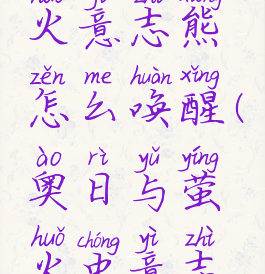 火意志熊
zěn me huàn xǐng
怎么唤醒(
ào rì yǔ yíng
奥日与萤
huǒ chóng yì zhì
火虫意志